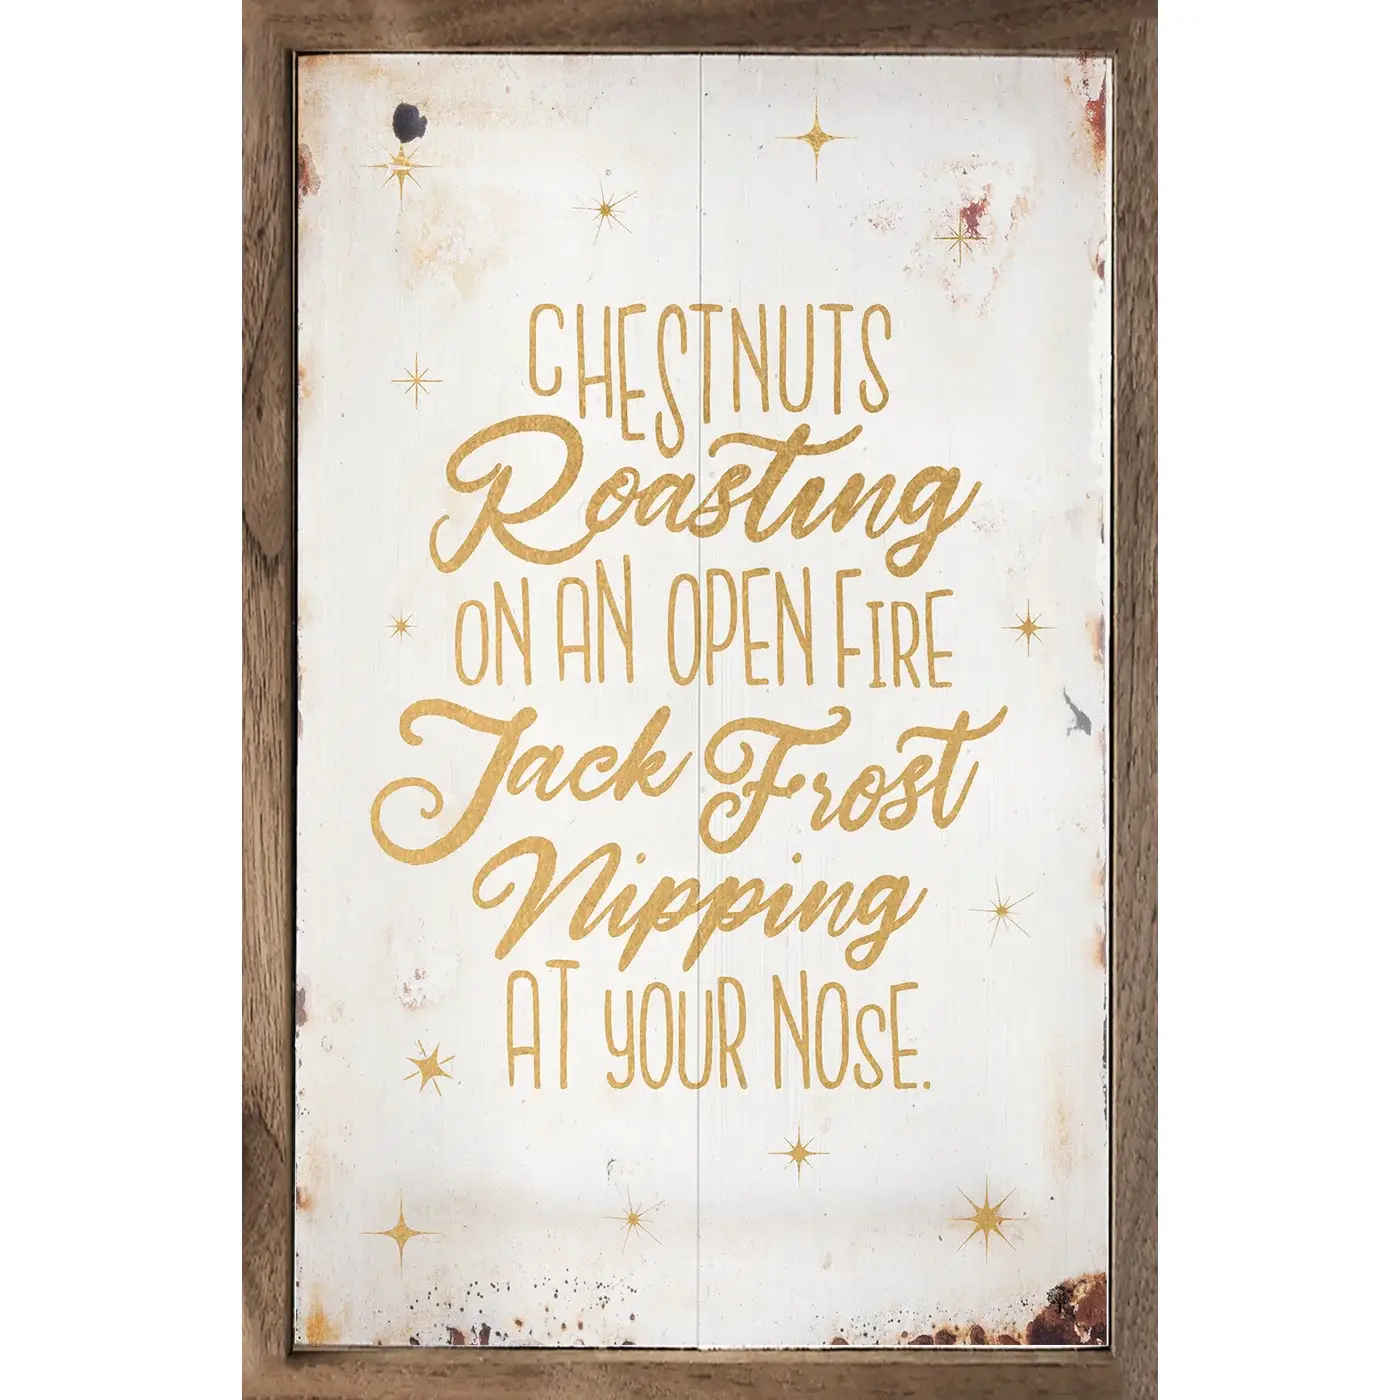 CHESTNUTS
Roasting
ON AN OPEN FIRE
Jack Frost
Nipping
AT YOUR NOSE.